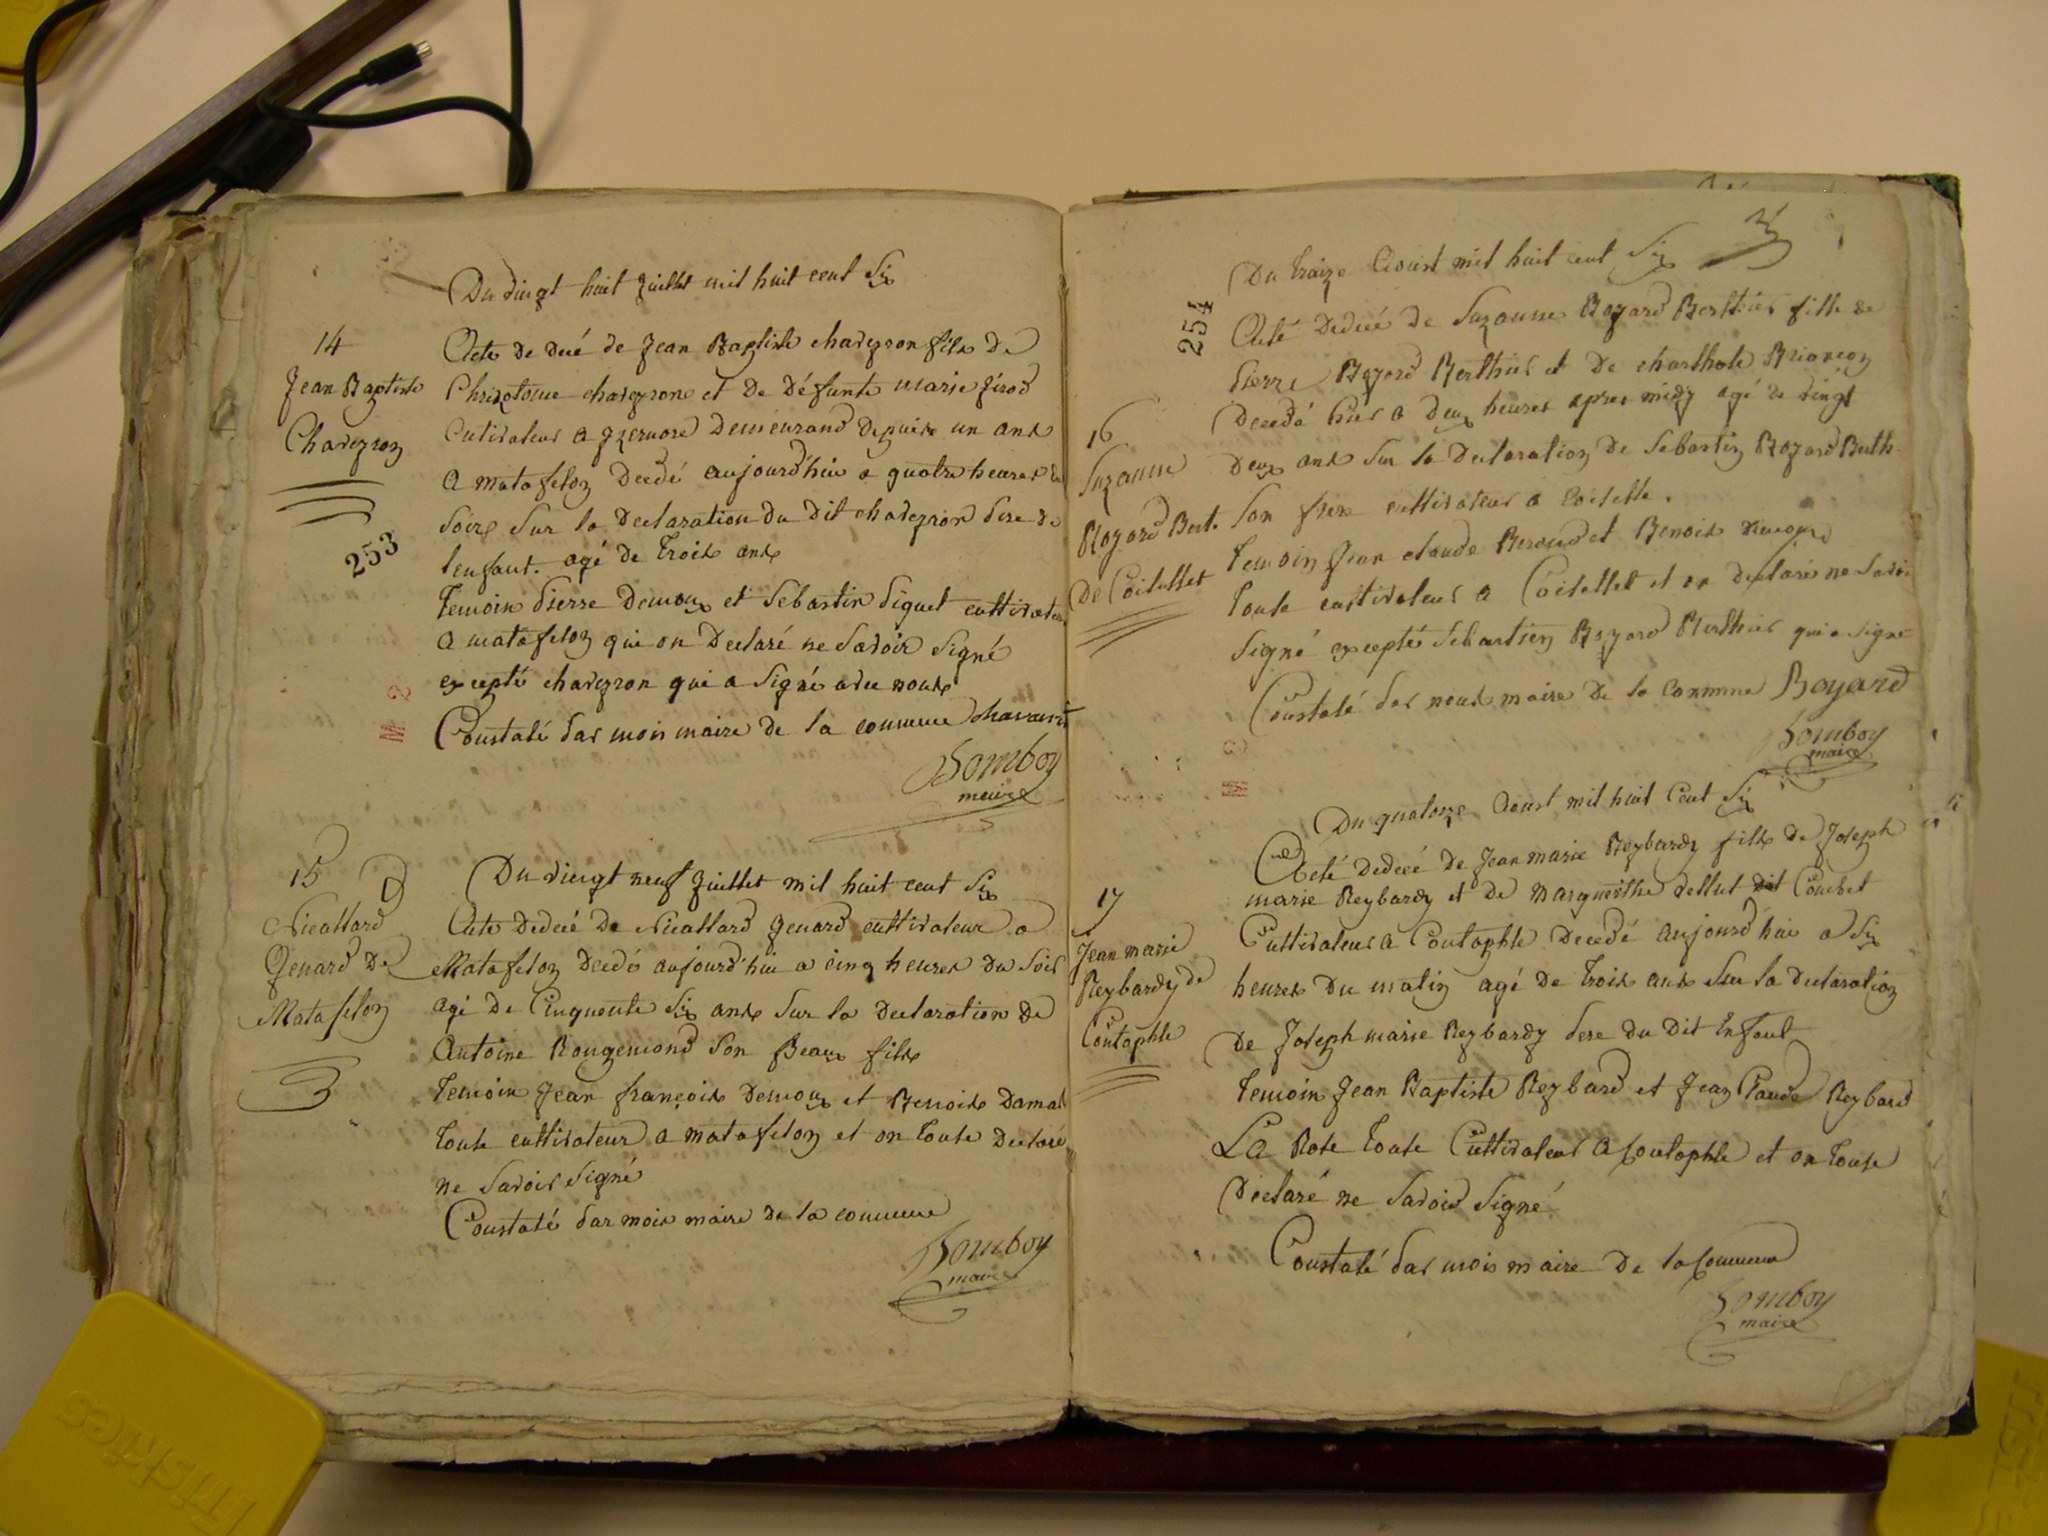 Du vingt huit juillet mil huit cent Six
14
Jean Baptiste
Chaveyron
253
Acte de decé de Jean Baptiste chaveyron fils de
Chrizotome chaveyrone et De Défunte marie girod
Cutivateur a Izernore Demeurand Depuix un ans
a matafelon Decedé aujourd'hui a quatre heures du
Soirs Sur la Declaration du Dit chaveyron pere de
lenfant. agé de troix ans
Temoin pierre Demoux et Sebastin piquet cultivateur
a matafelon qui on Declaré ne Savoir Signé
excepté chaveyron qui a Signé avec nous
Constaté par mois maire de la commune
Bomboy
maire
15
Nicallard
Genard De
Matafelon
Du vingt neuf juillet mil huit cent Six
Acte Dedecé De Nicallard Genard cultivateur a
Matafelon Decedé aujourd'hui a cinq heures Du Soir
agé De Cinquente Six ans Sur la Declaration De
Antoine Rougemond Son Beaux fils
Temoin Jean françois Demoux et Benois Damas
toute cultivateur a matafelon et on toute Declaré
ne Savoir Signé
Constaté par mois maire de la commune
Bomboy
maire
254
Du traize Aoust mil huit cent Six
16
Suzanne
Boyard Bert.
De Coisellet
Acté Dedecé de Suzanne Boyard Berthier fille de
pierre Boyard Berthier et De charlhote Briancon
Decedé hier a Deux heures apres midy agé de vingt
Deux ans Sur la Declaration de Sebastin Boyard Berth
Son frere cultivateur a Coiselle.
Temoin Jean claude Beroud et Benois
toute cultivateur a Coisellet et on declaré ne Savoi
Signé excepté Sebastien Boyard Berthier qui a Signé
Constaté par nous maire De la Commune Boyard
Bomboy
maire
17
Jean marie
Reybardy de
Contophle
Du quatorze Aoust mil huit Cent Six
Acté Dedecé de Jean marie Reybardy fils de Joseph
marie Reybardy et de Marguerithe pellut dit Couchet
Cultivateur a Contophle Decedé aujourd'hui a Six
heures Du matin agé De trois ans Sur la Declaration
De Joseph marie Reybardy pere du Dit Enfant
Temoin Jean Baptiste Reybard et Jean Claude Reybard
La Rose toute Cultivateur a Contophle et on toute
Déclaré ne Savoir Signé
Constaté par mois maire De la Commune
Bomboy
maire
Friskies